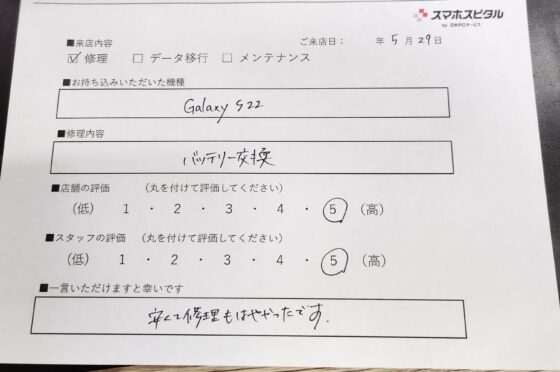 スマホスピタル
■来店内容 ご来店日： 年 5 月 29 日
☑ 修理 □ データ移行 □ メンテナンス
■お持ち込みいただいた機種
Galaxy S22
■修理内容
バッテリー交換
■店舗の評価 （丸を付けて評価してください）
（低） 1 ・ 2 ・ 3 ・ 4 ・ 5 （高）
■スタッフの評価 （丸を付けて評価してください）
（低） 1 ・ 2 ・ 3 ・ 4 ・ 5 （高）
■一言いただけますと幸いです
安くて修理もはやかったです.